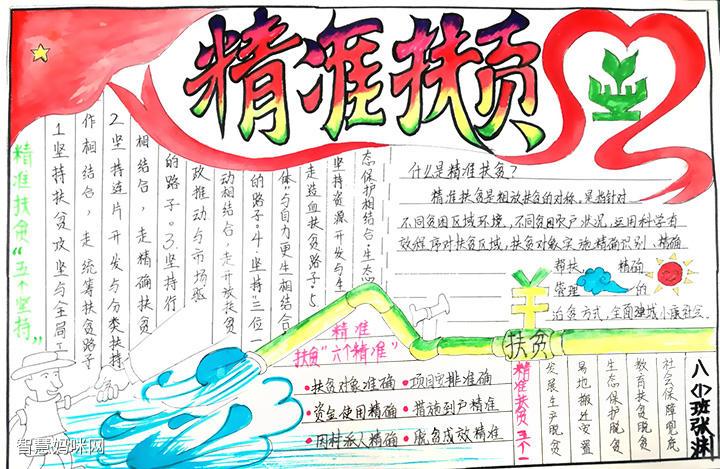 精准扶贫
精准扶贫“五个坚持”
1.坚持扶贫攻坚与全局工
作相结合，走统筹扶贫路子
2.坚持连片开发与分类扶持
相结合，走精确扶贫
的路子。3.坚持行
政推动与市场驱
动相结合，走开放扶贫
的路子。4.坚持“三位一
体”与自力更生相结合
走造血扶贫路子。5
坚持资源开发与生
态保护相结合.生态
什么是精准扶贫？
精准扶贫是粗放扶贫的对称，是指针对
不同贫困区域环境、不同贫困农户状况，运用科学有
效程序对扶贫区域，扶贫对象实施精确识别、精确
帮扶、精确
管理的
治贫方式，全面建成小康社会。
精准
扶贫“六个精准”
·扶贫对象准确·项目安排准确
·资金使用精确·措施到户精准
·因村派人精确·脱贫成效精准
扶贫
精准扶贫五个一
发展生产脱贫
易地搬迁安置
生态保护脱贫
教育扶贫脱贫
社会保障兜底
智慧妈咪网